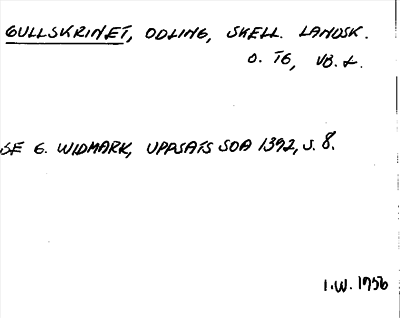 GULLSKRINET, ODLING, SKELL. LANDSK.
O. TG, VB. L.
SE G. WIDMARK, UPPSATS SOA 1392, S. 8.
I.W. 1956